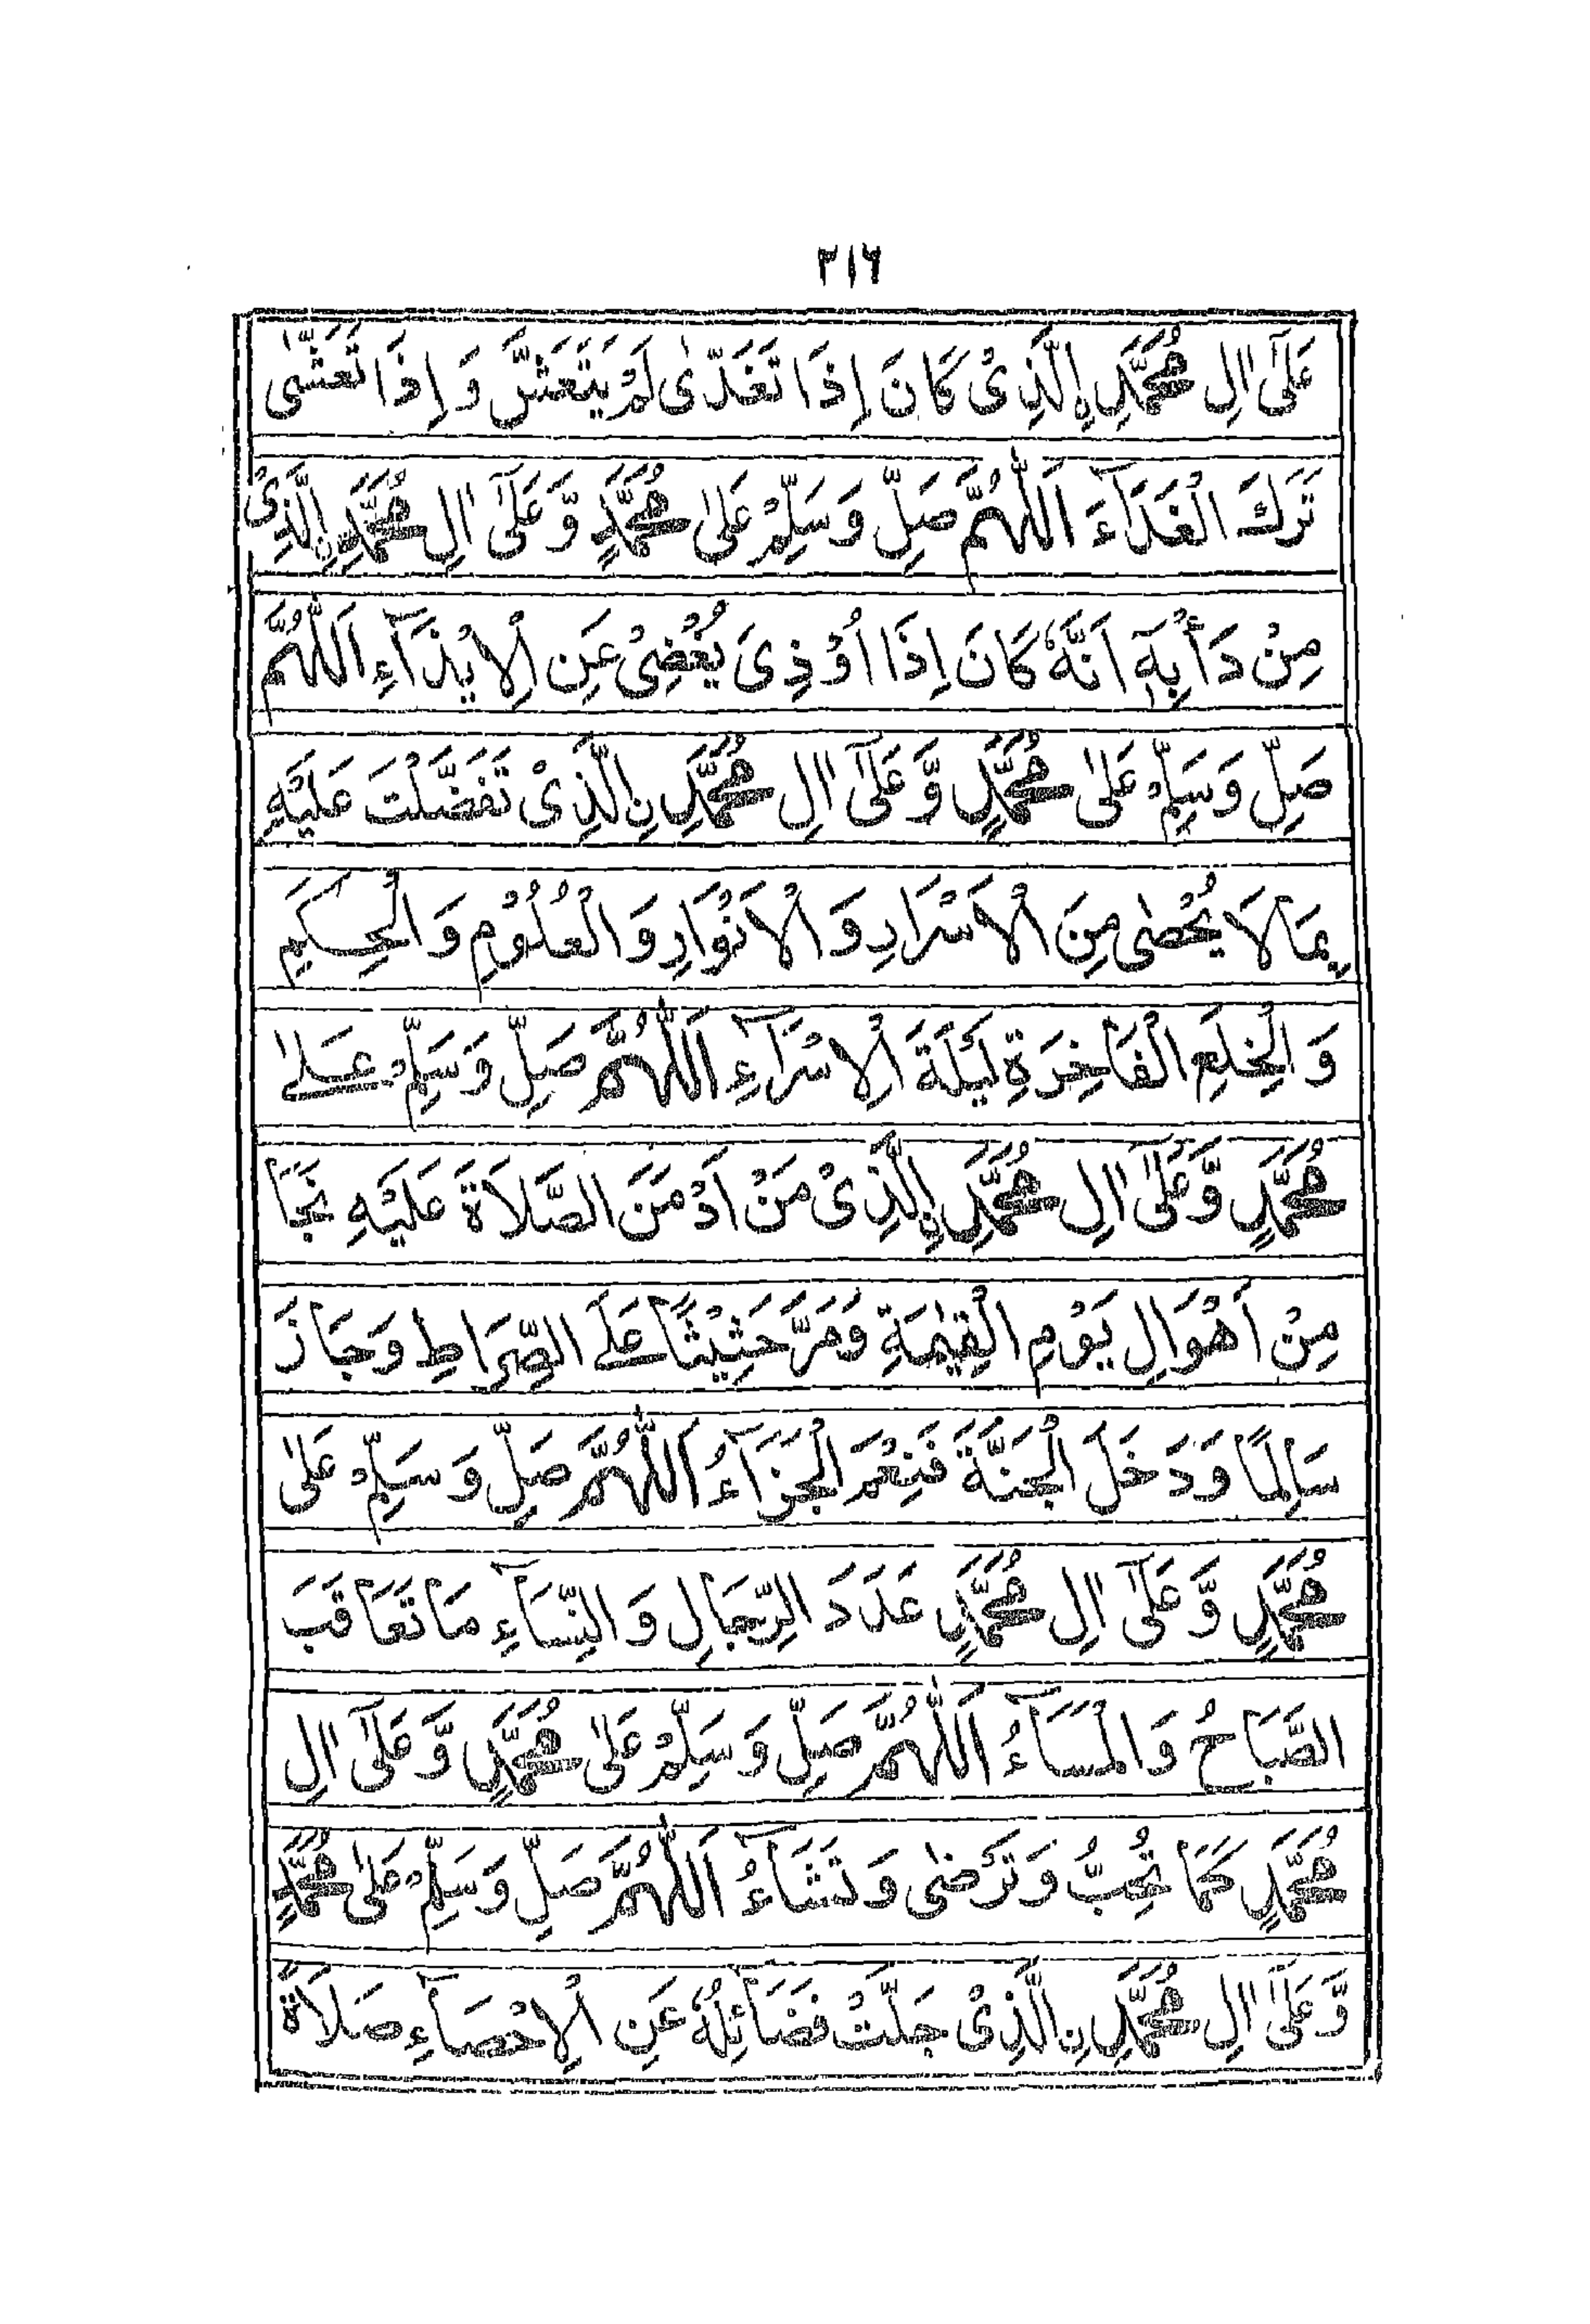 ۲۱۶
عَلٰٓى اٰلِ مُحَمَّدِ اِلَّذِىْ كَانَ اِذَا تَغَدّٰى لَمْ يَتَعَشَّ وَ اِذَا تَعَشّٰى
تَرَكَ الْغَدَآءَ اَللّٰهُمَّ صَلِّ وَسَلِّمْ عَلٰى مُحَمَّدٍ وَّ عَلٰٓى اٰلِ مُحَمَّدِ نِ الَّذِىْ
مِنْ دَأْبِهٖٓ اَنَّهٗ كَانَ اِذَا اُوْذِىَ يُغْضِىْ عَنِ الْاِيْذَآءِ اَللّٰهُمَّ
صَلِّ وَسَلِّمْ عَلٰى مُحَمَّدٍ وَّ عَلٰٓى اٰلِ مُحَمَّدِ نِ الَّذِىْ تَفَضَّلْتَ عَلَيْهِ
بِمَا لَا يُحْصٰى مِنَ الْاَسْرَارِ وَ الْاَنْوَارِ وَ الْعُلُوْمِ وَ الْحِكَمِ
وَ الْخِلَعِ الْفَاخِرَةِ لَيْلَةَ الْاِسْرَآءِ اَللّٰهُمَّ صَلِّ وَسَلِّمْ عَلٰى
مُحَمَّدٍ وَّ عَلٰٓى اٰلِ مُحَمَّدِ نِ الَّذِىْ مَنْ اَدْمَنَ الصَّلَاةَ عَلَيْهِ نَجَا
مِنْ اَهْوَالِ يَوْمِ الْقِيٰمَةِ وَمَرَّ حَثِيْثًا عَلَى الصِّرَاطِ وَجَازَ
سَالِمًا وَدَخَلَ الْجَنَّةَ فَنِعْمَ الْجَزَآءُ اَللّٰهُمَّ صَلِّ وَسَلِّمْ عَلٰى
مُحَمَّدٍ وَّ عَلٰٓى اٰلِ مُحَمَّدٍ عَدَدَ الرِّجَالِ وَ النِّسَآءِ مَا تَعَاقَبَ
الصَّبَاحُ وَ الْمَسَآءُ اَللّٰهُمَّ صَلِّ وَسَلِّمْ عَلٰى مُحَمَّدٍ وَّ عَلٰٓى اٰلِ
مُحَمَّدٍ كَمَا تُحِبُّ وَتَرْضٰى وَتَشَآءُ اَللّٰهُمَّ صَلِّ وَسَلِّمْ عَلٰى مُحَمَّدٍ
وَّ عَلٰٓى اٰلِ مُحَمَّدِ نِ الَّذِىْ جَلَّتْ فَضَآئِلُهٗ عَنِ الْاِحْصَآءِ صَلَاةً